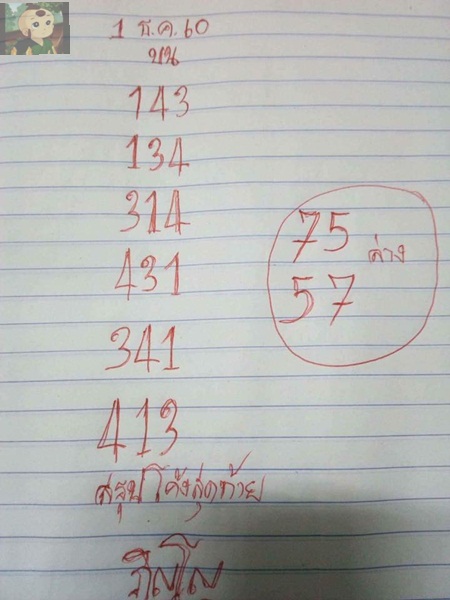 1 ธ.ค.60
บน
143
134
314
431
341
413
75
ล่าง
57
สรุปโค้งสุดท้าย